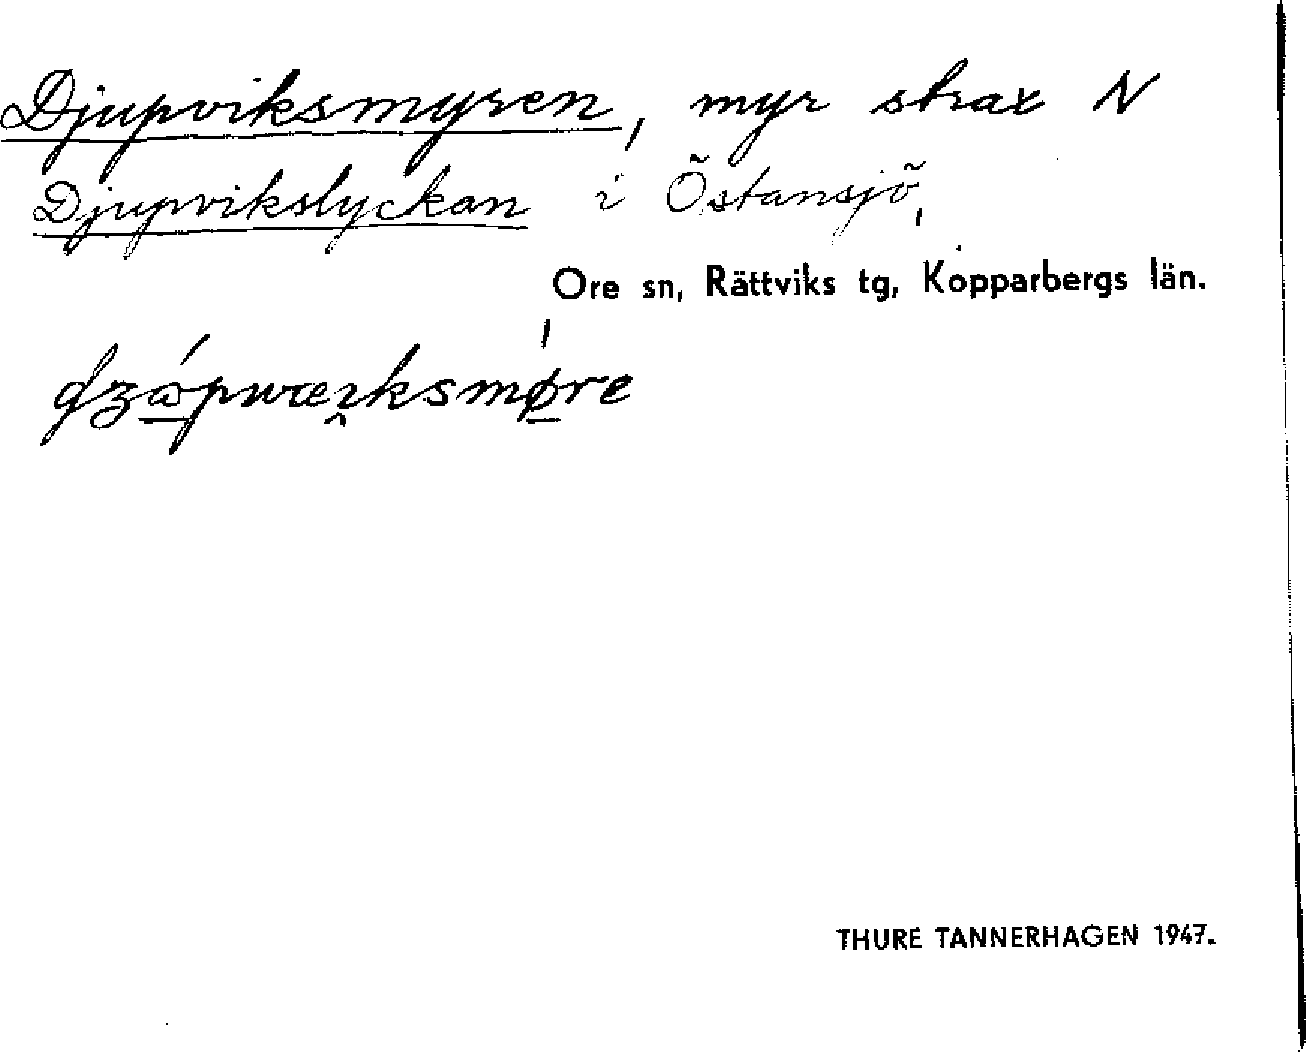 Djupviksmyren, myr strax N
Djupvikslyckan i Östansjö,
Ore sn, Rättviks tg, Kopparbergs län.
THURE TANNERHAGEN 1947.